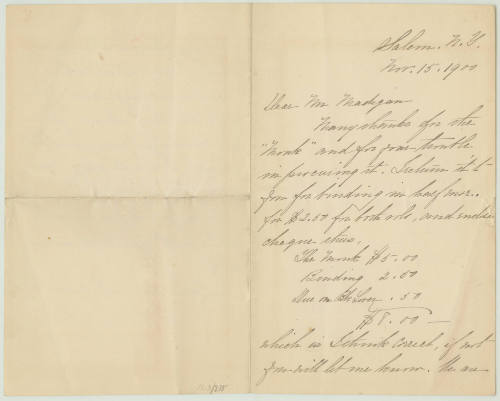 Salem. N. Y.
Nov. 15. 1900
Dear Mr Madigan
Many thanks for the
"Monk" and for your trouble
in procuring it. I return it to
you for binding in half mor.
for $2.50 for both vols, and enclose
cheque thus,
The Monk $5.00
Binding 2.50
Due on .50
$8.00 —
which is I think correct, if not
you will let me know. We are